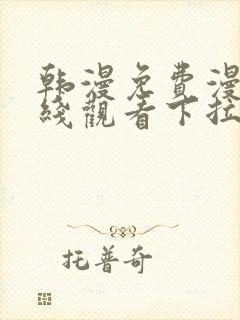 韩漫免費漫
綫觀看下拉
托普奇